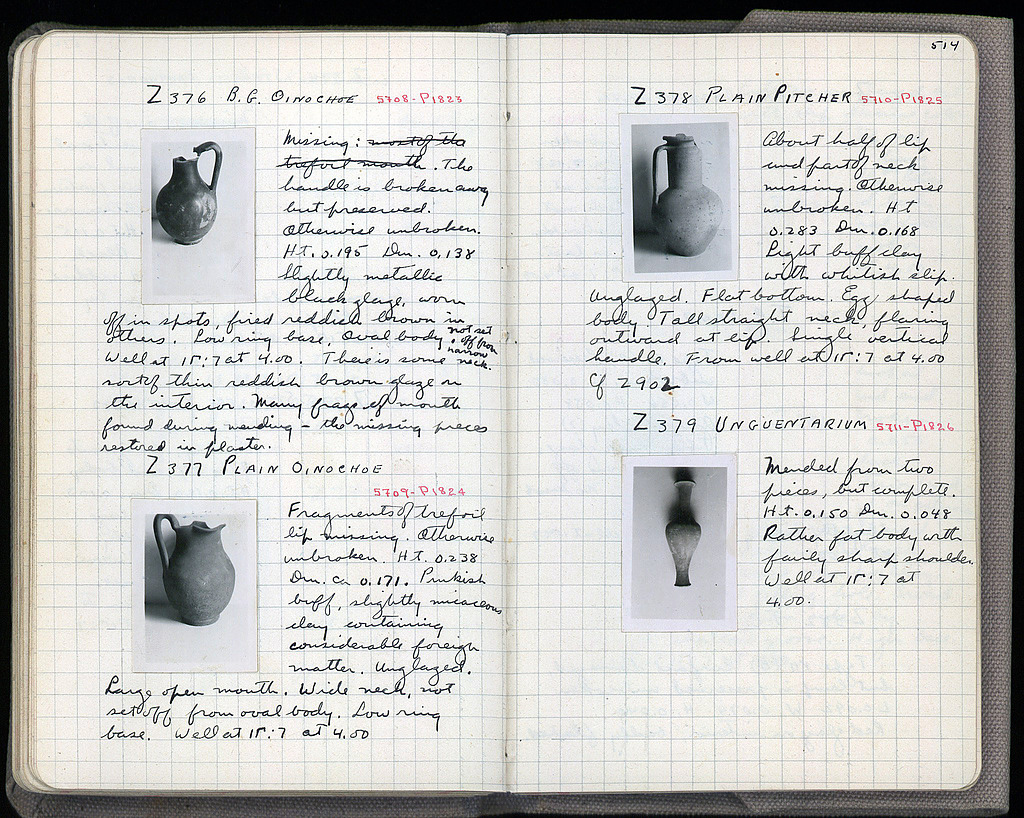 514
Z 376 B.G. OINOCHOE 5708-P1823
Missing: most of the
trefoil mouth. The
handle is broken away
but preserved.
Otherwise unbroken.
Ht. 0.195 Dm. 0.138
Slightly metallic
black glaze, worn
off in spots, fired reddish brown in
others. Low ring base, Oval body, not set off from narrow neck.
Well at ΙΓ:7 at 4.00. There is some
sort of thin reddish brown glaze on
the interior. Many frags of mouth
found during mending – the missing pieces
restored in plaster.
Z 377 PLAIN OINOCHOE
5709-P1824
Fragments of trefoil
lip missing. Otherwise
unbroken. Ht. 0.238
Dm. ca 0.171. Pinkish
buff, slightly micaceous
clay containing
considerable foreign
matter. Unglazed.
Large open mouth. Wide neck, not
set off from oval body. Low ring
base. Well at ΙΓ:7 at 4.00
Z 378 PLAIN PITCHER 5710-P1825
About half of lip
and part of neck
missing. Otherwise
unbroken. Ht
0.283 Dm. 0.168
Light buff clay
with whitish slip.
Unglazed. Flat bottom. Egg shaped
body. Tall straight neck, flaring
outward at lip. Single vertical
handle. From well at ΙΓ:7 at 4.00
Cf Z902
Z 379 UNGUENTARIUM 5711-P1826
Mended from two
pieces, but complete.
Ht. 0.150 Dm. 0.048
Rather fat body with
fairly sharp shoulder.
Well at ΙΓ:7 at
4.00.